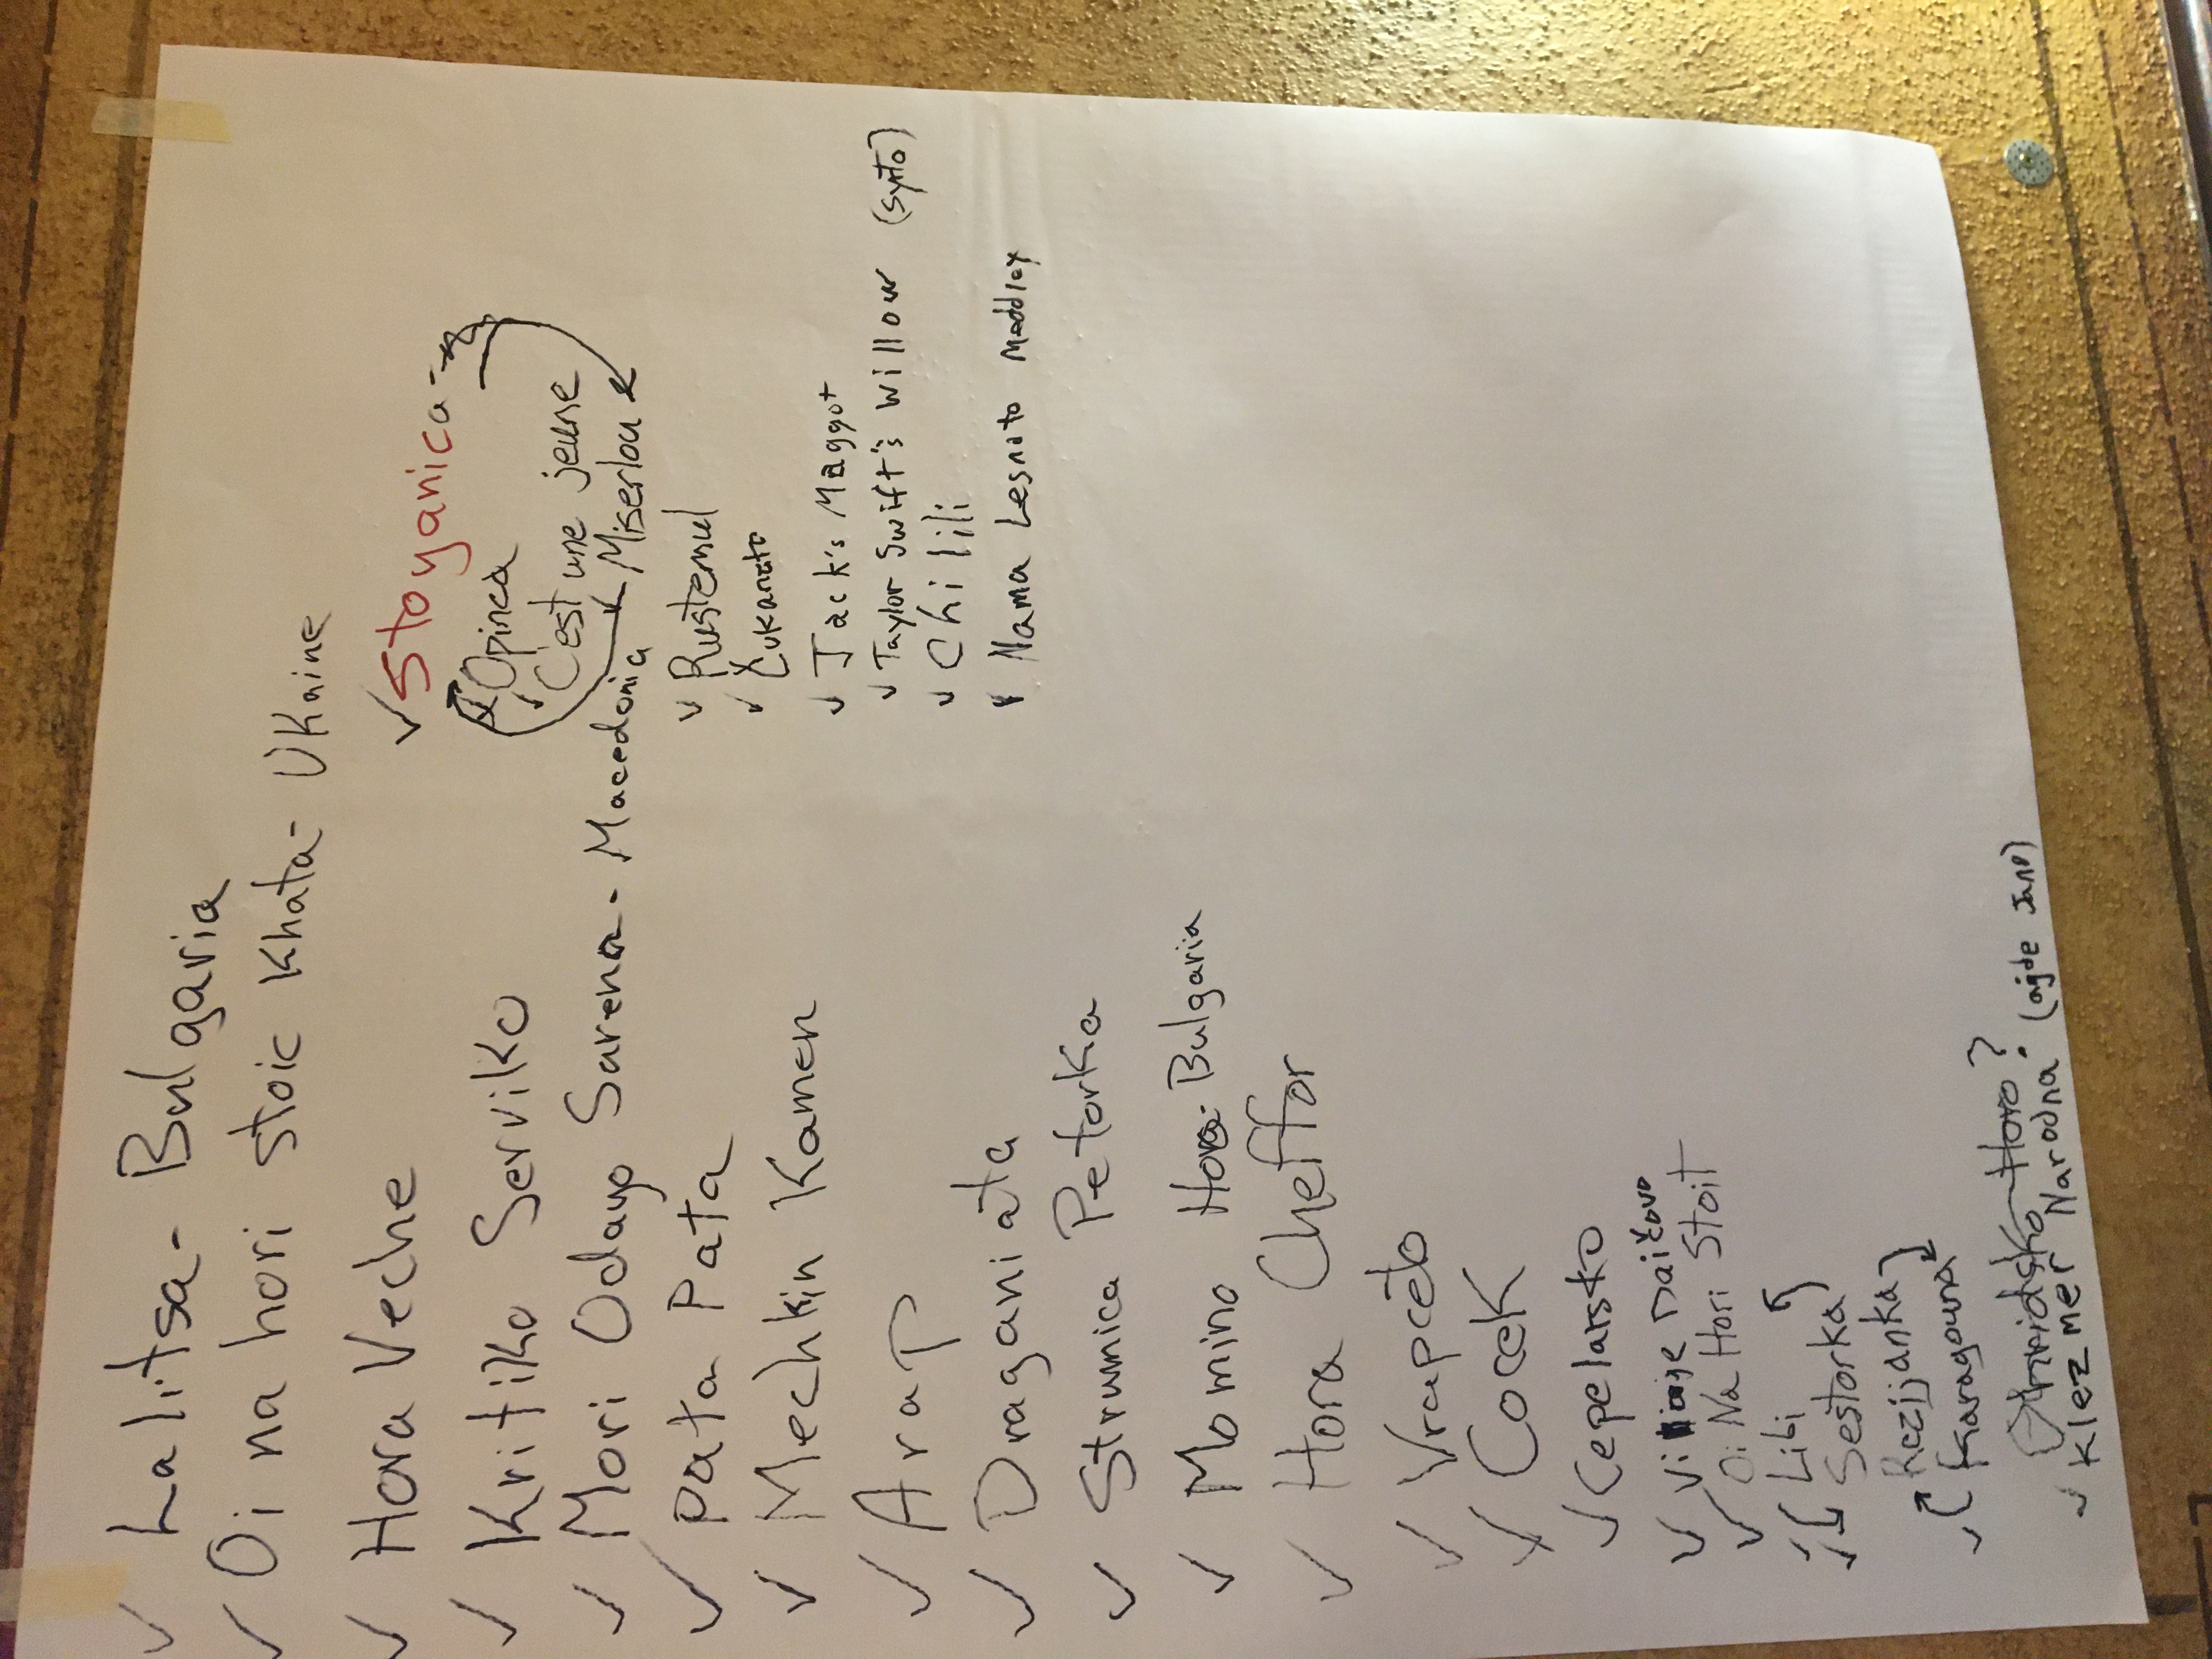 ✓ Lalitsa - Bulgaria
✓ Oi na hori stoic Khata - Ukaine
✓ Hora Veche
✓ Kritiko Serviko
✓ Mori Odayo Sarena - Macedonia
✓ Pata Pata
✓ Mechkin Kamen
✓ Arap
✓ Draganiata
✓ Strumica Petorka
✓ Momino Horo - Bulgaria
✓ Hora Cheffor
✓ Vrapceto
✓ Cocek
✓ Cepelarsko
✓ Daičovo
✓ Oi Na Hori Stoit
✓ Libi
✓ Sestorka
Rezijanka
✓ Karagouna
Horo?
✓ Klezmer Narodna! (ajde Jano)
✓ Stoyanica
Opinca
C'est une jeune
Miserlou
✓ Rustemul
✓ Cukanoto
✓ Jack's Maggot
✓ Taylor Swift's Willow
✓ Chilili
✓ Nama Lesnoto Meddley